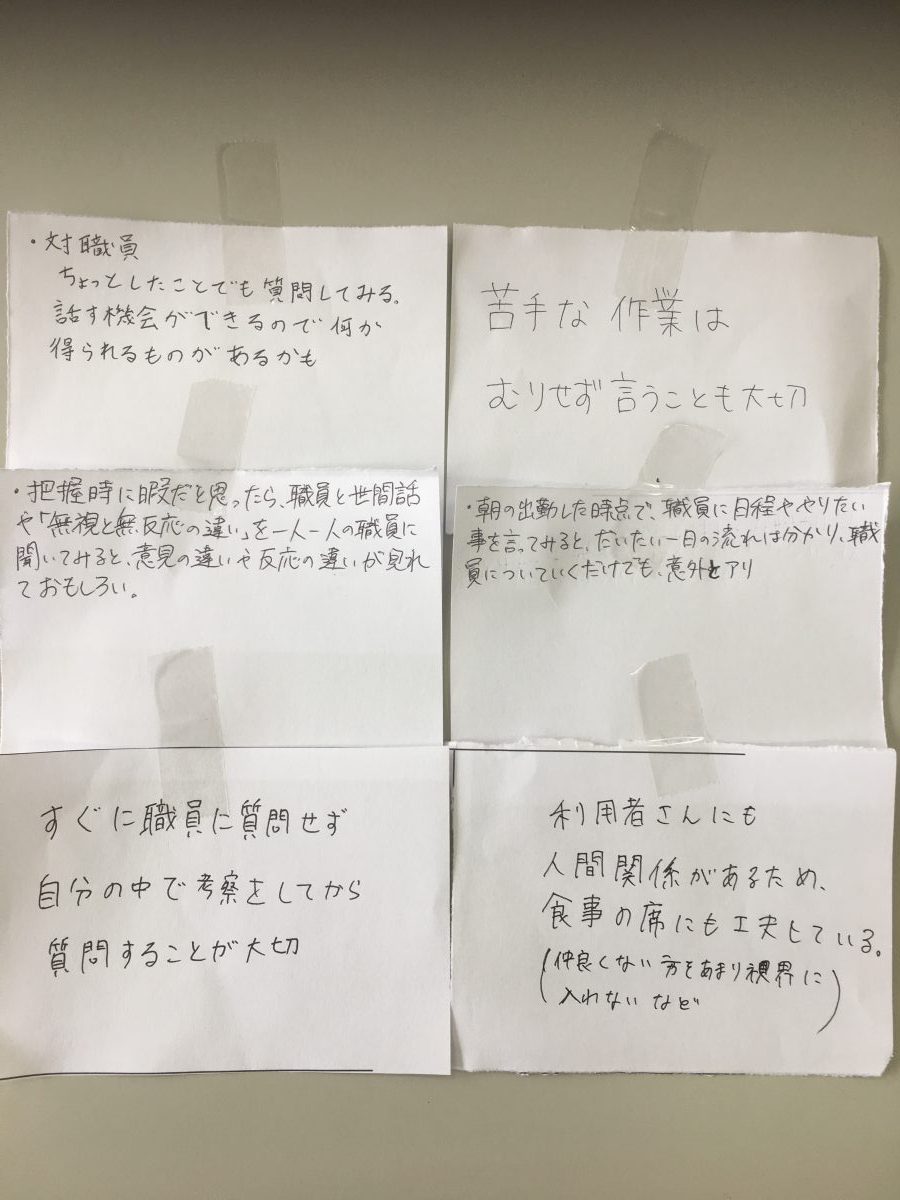 ・対職員
ちょっとしたことでも質問してみる。
話す機会ができるので何か
得られるものがあるかも
苦手な作業は
むりせず言うことも大切
・把握時に暇だと思ったら、職員と世間話
や「無視と無反応の違い」を一人一人の職員に
聞いてみると、意見の違いや反応の違いが見れ
ておもしろい。
・朝の出勤した時点で、職員に日程ややりたい
事を言ってみると、だいたい一日の流れは分かり、職
員についていくだけでも、意外とアリ
すぐに職員に質問せず
自分の中で考察をしてから
質問することが大切
利用者さんにも
人間関係があるため、
食事の席にも工夫している。
(仲良くない方をあまり視界に
入れないなど)